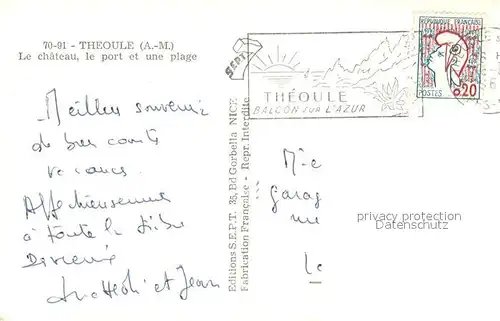 70-91 - THEOULE (A.-M.)
Le château, le port et une plage
Meilleur souvenir
de bien courte
vacances
Affectueusement
à toute la tribu
et Jean
Editions S.E.P.T. 35, Bd Gorbella NICE
Fabrication Française - Repr. Interdite
SEPT
THÉOULE
BALCON SUR L'AZUR
REPUBLIQUE FRANÇAISE
POSTES 0,20
garag
privacy protection
Datenschutz